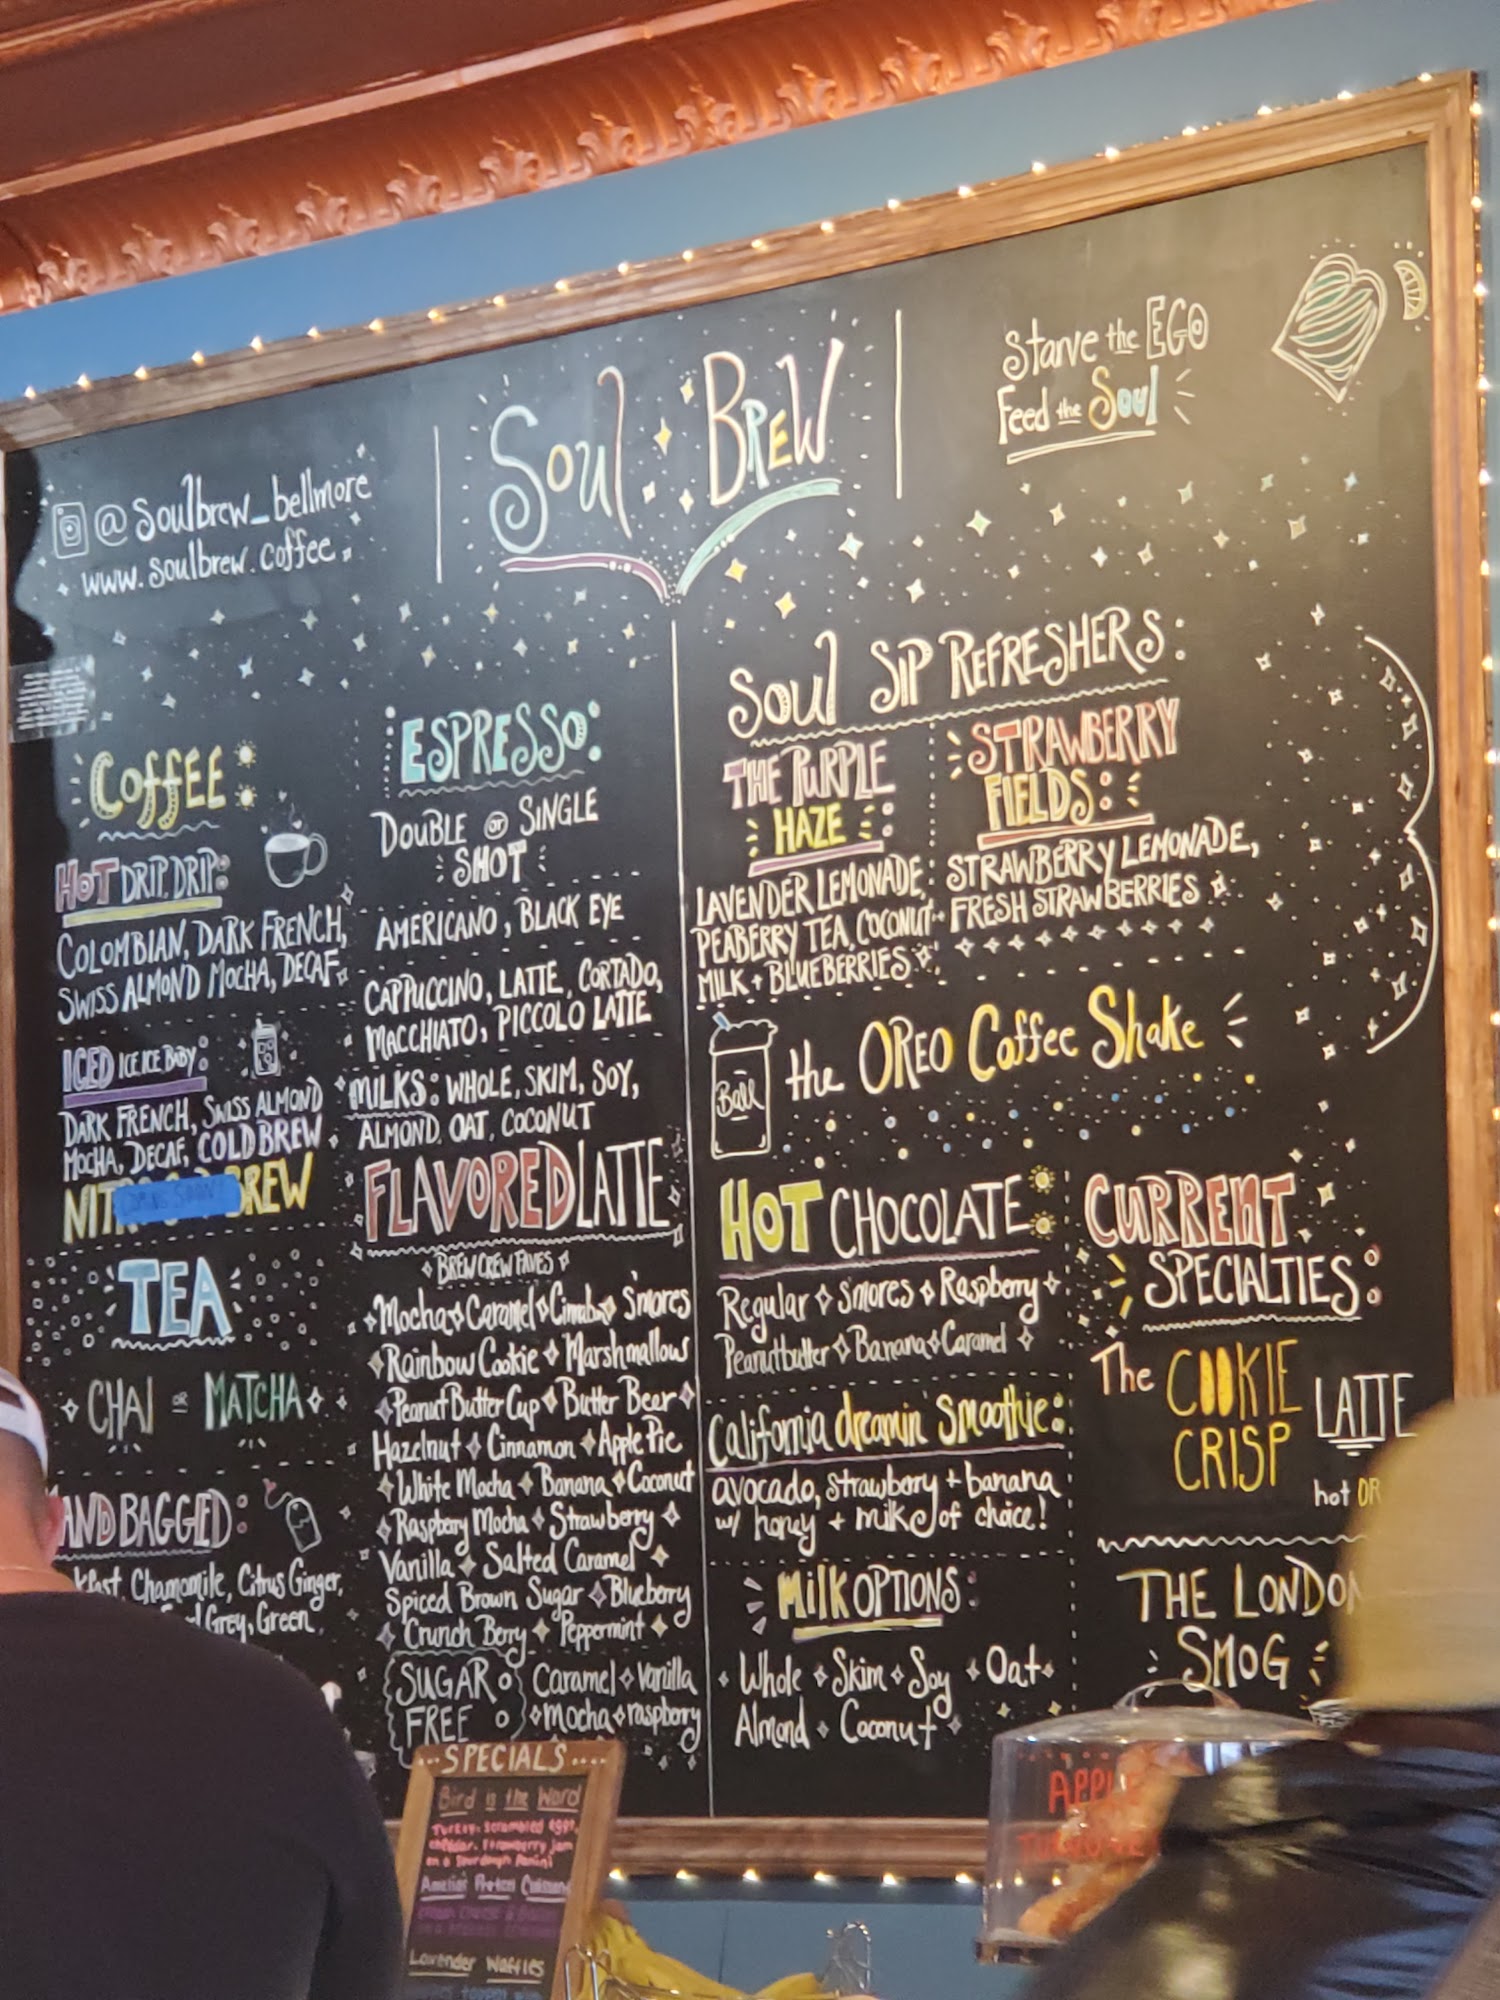 @soulbrew_bellmore
www.soulbrew.coffee
Soul BREW
Starve the EGO
Feed the Soul
COFFEE
HOT DRIP, DRIP:
COLOMBIAN, DARK FRENCH,
SWISS ALMOND MOCHA, DECAF
ICED ICE ICE BABY:
DARK FRENCH, SWISS ALMOND
MOCHA, DECAF, COLD BREW
NIT BREW
COMING SOON!
TEA
CHAI OR MATCHA
AND BAGGED:
Chamomile, Citrus Ginger,
Grey, Green
ESPRESSO:
DOUBLE OR SINGLE
SHOT
AMERICANO, BLACK EYE
CAPPUCCINO, LATTE, CORTADO,
MACCHIATO, PICCOLO LATTE
MILKS: WHOLE, SKIM, SOY,
ALMOND, OAT, COCONUT
FLAVORED LATTE
BREW CREW FAVES
Mocha Caramel Cinnabon S'mores
Rainbow Cookie Marshmallow
Peanut Butter Cup Butter Beer
Hazelnut Cinnamon Apple Pie
White Mocha Banana Coconut
Raspberry Mocha Strawberry
Vanilla Salted Caramel
Spiced Brown Sugar Blueberry
Crunch Berry Peppermint
SUGAR FREE
Caramel Vanilla
Mocha raspberry
SOUL SIP REFRESHERS:
THE PURPLE
HAZE:
LAVENDER LEMONADE,
PEABERRY TEA, COCONUT
MILK + BLUEBERRIES
STRAWBERRY
FIELDS:
STRAWBERRY LEMONADE,
FRESH STRAWBERRIES
Ball
the OREO Coffee Shake
HOT CHOCOLATE
Regular S'mores Raspberry
Peanutbutter Banana Caramel
California dreamin' Smoothie:
avocado, strawberry + banana
w/ honey + milk of choice!
Milk OPTIONS:
Whole Skim Soy Oat
Almond Coconut
CURRENT
SPECIALTIES:
The COOKIE
CRISP
LATTE
hot OR
THE LONDON
SMOG
SPECIALS
Bird is the Word
Turkey, scrambled eggs,
cheddar, strawberry jam
on a sourdough panini
Lavender Waffles
APPLE
TURNOVER